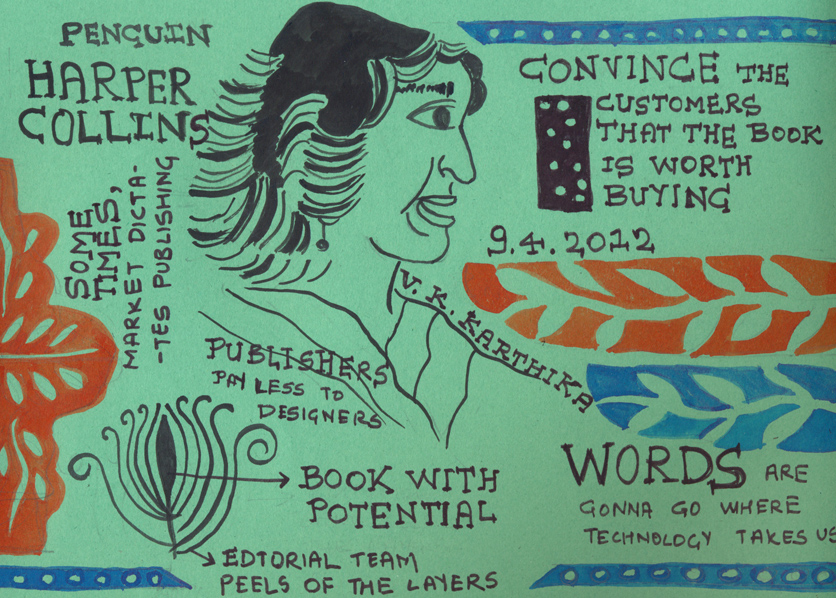 PENGUIN
HARPER
COLLINS
SOME
TIMES,
MARKET DICTA-
-TES PUBLISHING
CONVINCE THE
CUSTOMERS
THAT THE BOOK
IS WORTH
BUYING
9.4.2012
V. K. KARTHIKA
PUBLISHERS
PAY LESS TO
DESIGNERS
BOOK WITH
POTENTIAL
EDTORIAL TEAM
PEELS OF THE LAYERS
WORDS ARE
GONNA GO WHERE
TECHNOLOGY TAKES US